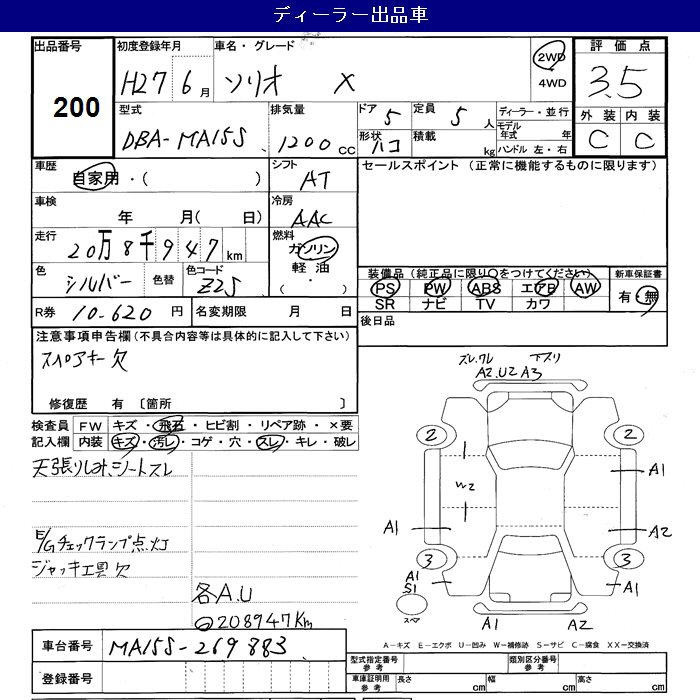 ディーラー出品車
出品番号 200
初度登録年月 H27 6月
車名・グレード ソリオ X
2WD
4WD
評価点 3.5
外装 内装
C C
型式 DBA-MA15S
排気量 1200 cc
ドア 5
形状 ハコ
定員 5 人
積載 kg
ディーラー・並行
モデル年式 年
ハンドル 左・右
車歴 自家用・( )
シフト AT
セールスポイント (正常に機能するものに限ります)
車検 年 月( 日)
冷房 AAC
走行 20万8千947km
燃料 ガソリン
軽油
( ・ )
色 シルバー 色替
色コード Z2S
装備品 (純正品に限り○をつけてください)
PS PW ABS エアB AW
SR ナビ TV カワ
新車保証書
有・無
R券 10-620 円
名変期限 月 日
後日品
注意事項申告欄 (不具合内容等は具体的に記入して下さい)
スペアキー欠
修復歴 有 〔箇所 〕
検査員記入欄
FW キズ・飛石・ヒビ割・リペア跡・×要
内装 キズ・汚レ・コゲ・穴・スレ・キレ・破レ
ズレ.ワレ 下スリ
A2.U2 A3
2 2
A1
W2
A1 A2
3 3
A1
S1
A1
スペア
A1 A2
シートスレ
E/Gチェックランプ点灯
ジャッキ工具欠
各A.U
208947Km
車台番号 MA15S-269883
登録番号
A-キズ E-エクボ U-凹み W-補修跡 S-サビ C-腐食 XX-交換済
型式指定番号 参考
類別区分番号 参考
車庫証明用 参考 長さ cm 幅 cm 高さ cm